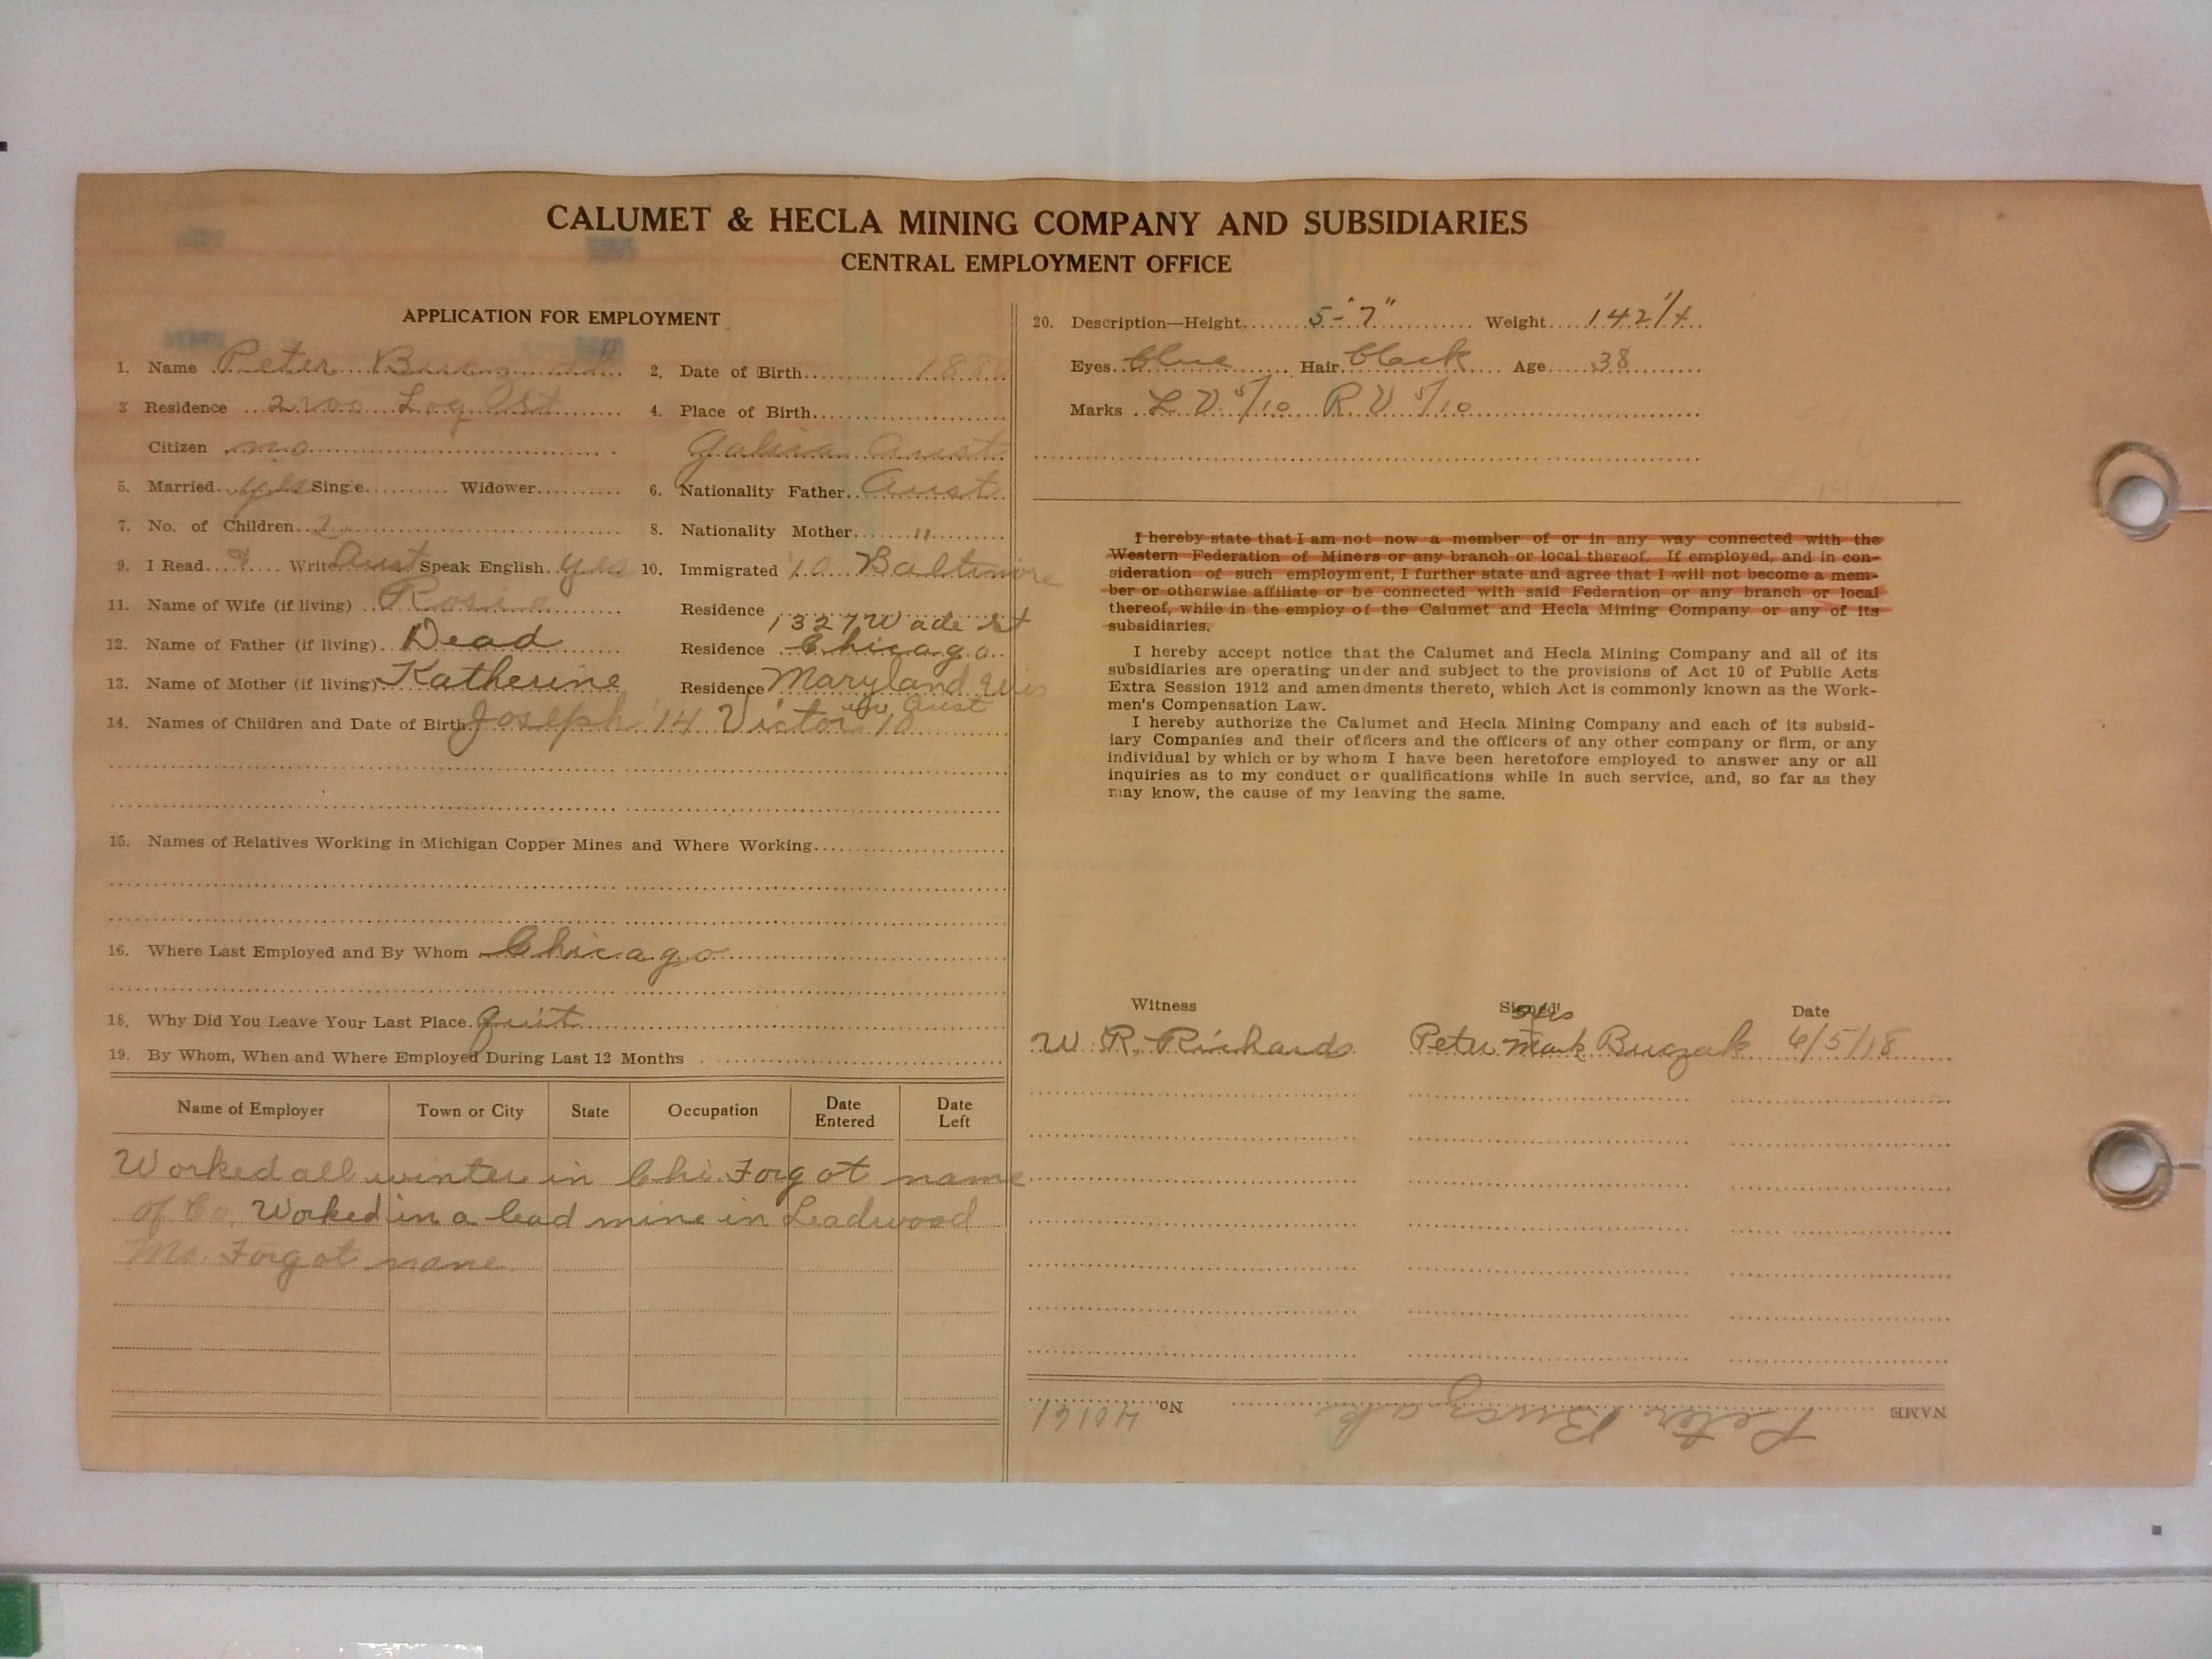 CALUMET & HECLA MINING COMPANY AND SUBSIDIARIES
CENTRAL EMPLOYMENT OFFICE
APPLICATION FOR EMPLOYMENT
1. Name Peter
2. Date of Birth 1880
3 Residence Log St
4. Place of Birth
Citizen no
Galicia Aust
5. Married yes Single Widower
6. Nationality Father Aust
7. No. of Children 2
8. Nationality Mother "
9. I Read & Write Aust Speak English yes
10. Immigrated '10 Baltimore
11. Name of Wife (if living) Rosie
Residence 1327 Wade St
12. Name of Father (if living) Dead
Residence Chicago
13. Name of Mother (if living) Katherine
Residence Maryland
Aust
14. Names of Children and Date of Birth Joseph '14 Victor 10
15. Names of Relatives Working in Michigan Copper Mines and Where Working
16. Where Last Employed and By Whom Chicago
18. Why Did You Leave Your Last Place. Quit
19. By Whom, When and Where Employed During Last 12 Months
Name of Employer Town or City State Occupation Date Entered Date Left
Worked all winter in Chi. Forgot name
of Co. Worked in a lead mine in Leadwood
Mo. Forgot name
20. Description—Height 5-7" Weight 142 1/4
Eyes blue Hair black Age 38
Marks L V 5/10 R V 5/10
I hereby state that I am not now a member of or in any way connected with the
Western Federation of Miners or any branch or local thereof. If employed, and in con-
sideration of such employment, I further state and agree that I will not become a mem-
ber or otherwise affiliate or be connected with said Federation or any branch or local
thereof, while in the employ of the Calumet and Hecla Mining Company or any of its
subsidiaries.
I hereby accept notice that the Calumet and Hecla Mining Company and all of its
subsidiaries are operating under and subject to the provisions of Act 10 of Public Acts
Extra Session 1912 and amendments thereto, which Act is commonly known as the Work-
men's Compensation Law.
I hereby authorize the Calumet and Hecla Mining Company and each of its subsid-
iary Companies and their officers and the officers of any other company or firm, or any
individual by which or by whom I have been heretofore employed to answer any or all
inquiries as to my conduct or qualifications while in such service, and, so far as they
may know, the cause of my leaving the same.
Witness Signed Date
his
W. R. Richards Peter mark Buczak 6/5/18
NAME Peter Buczak No. 40161